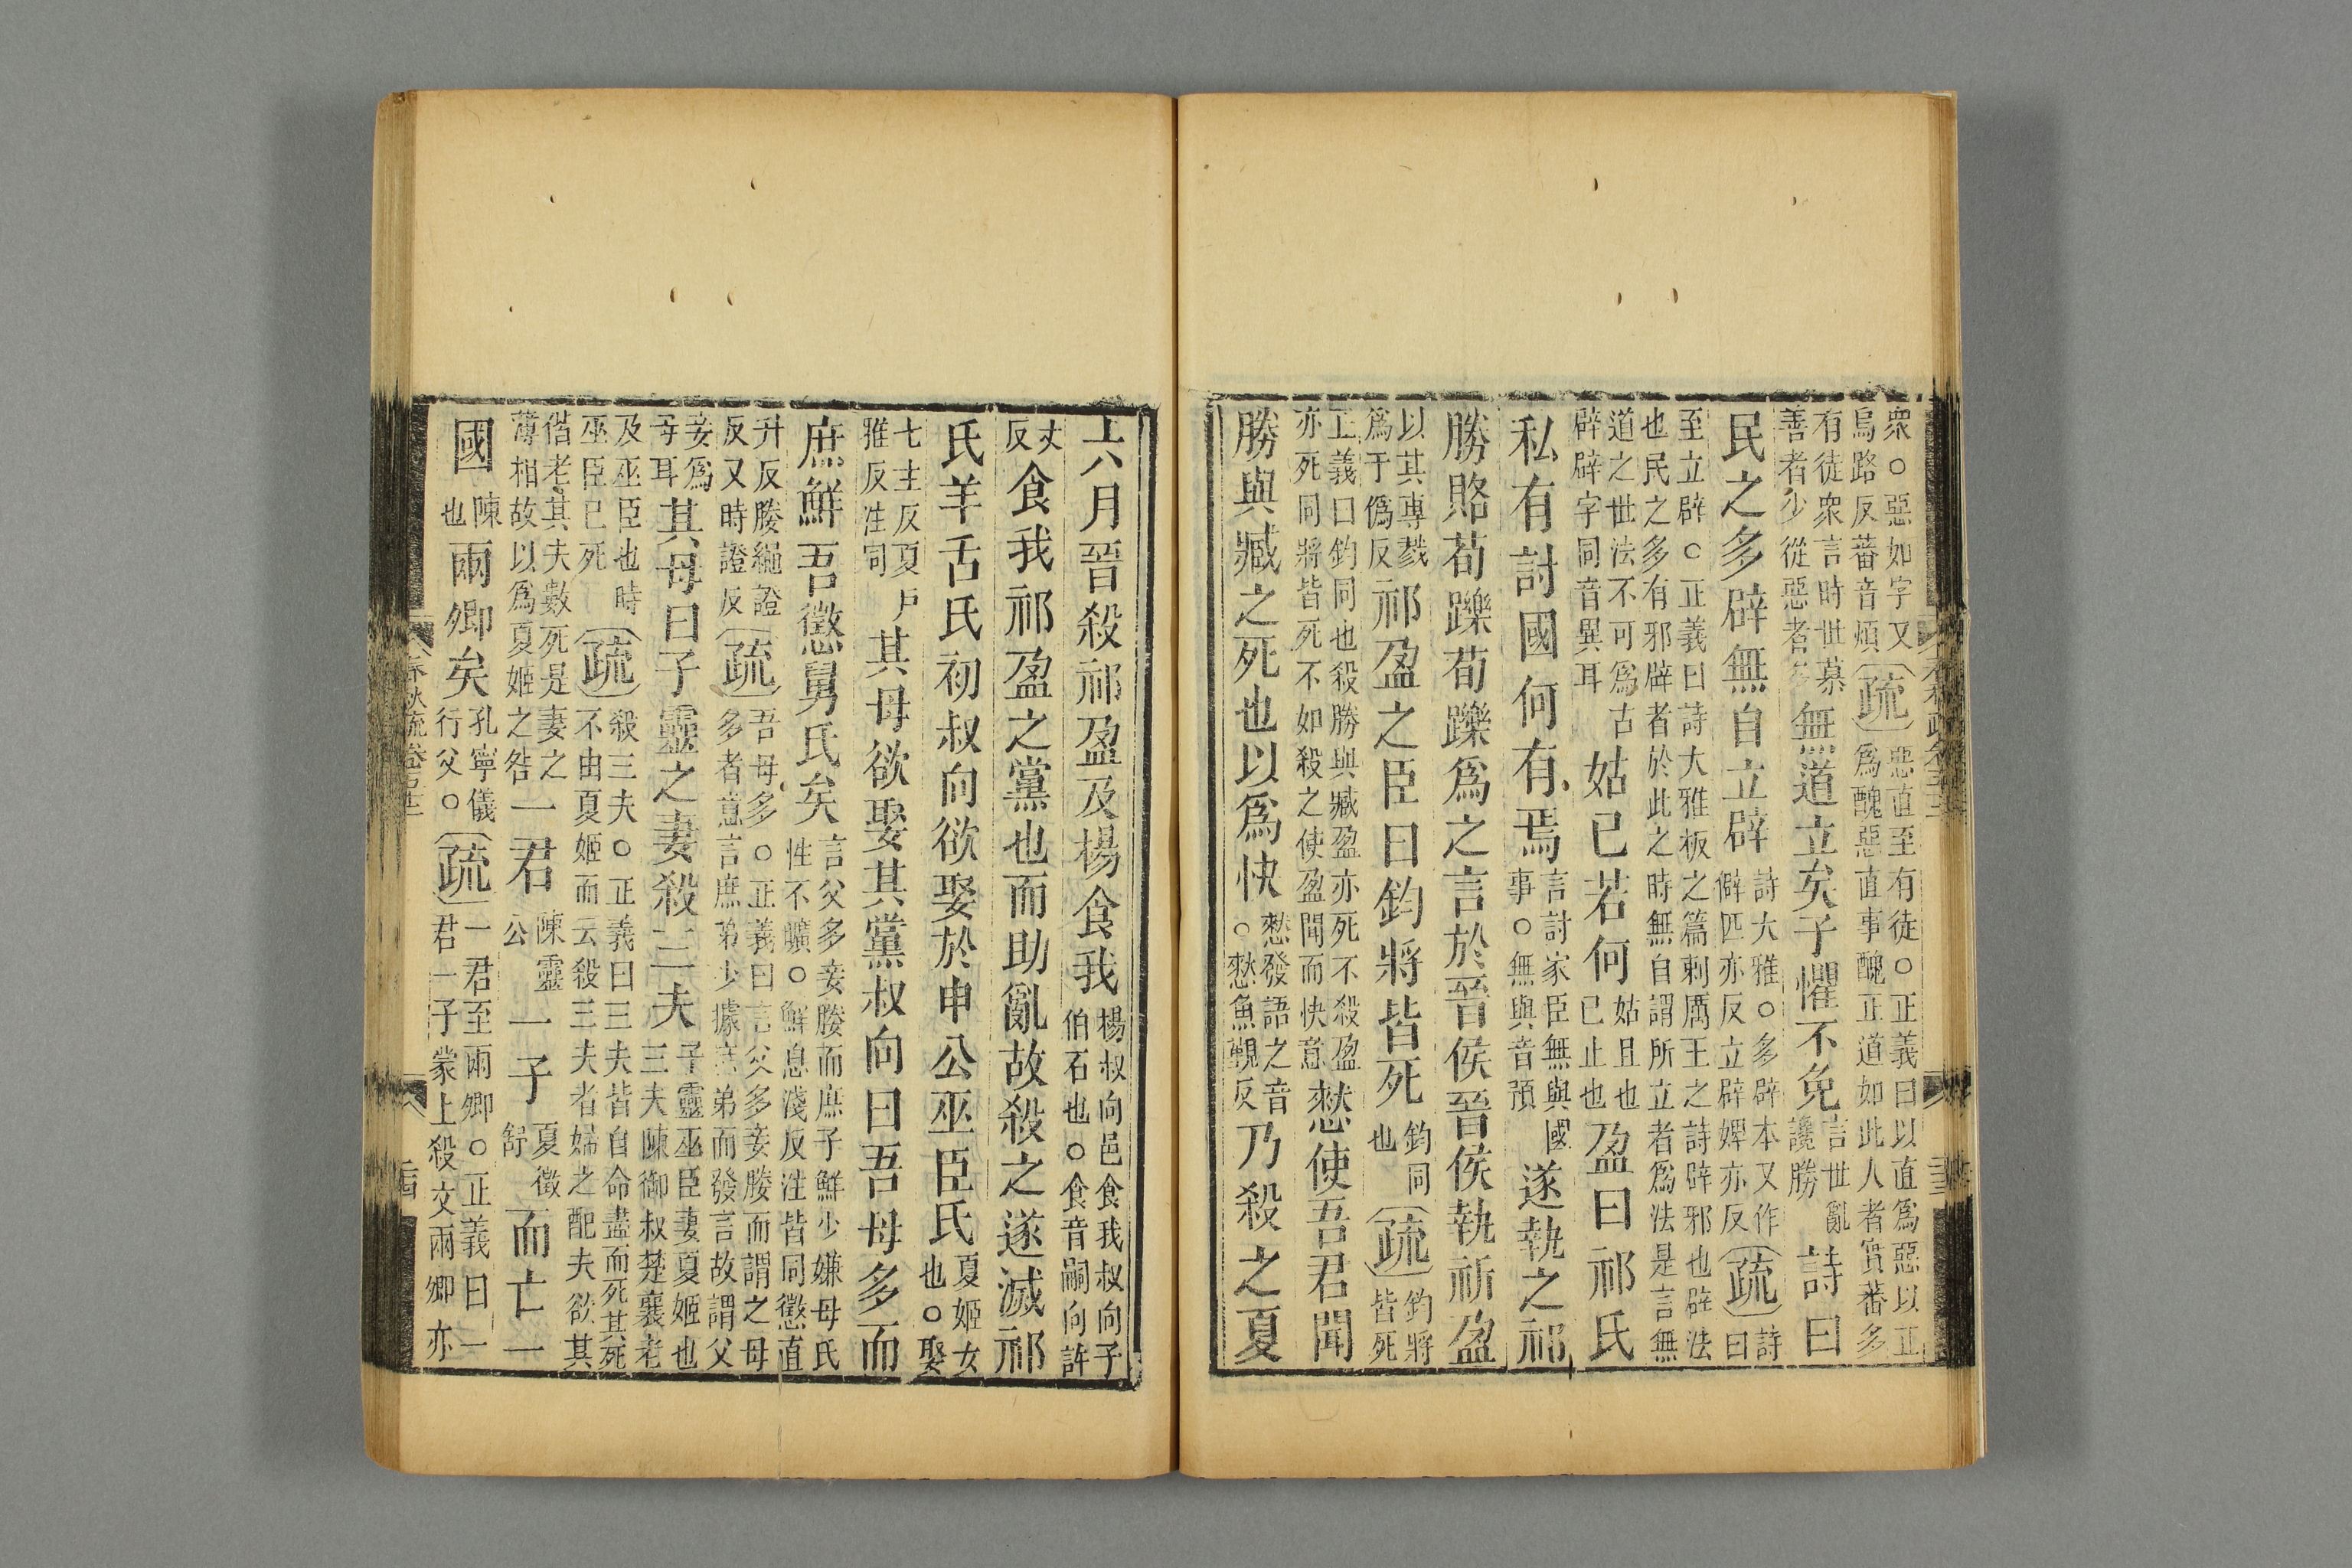 衆○惡如字又
烏路反蕃音煩
疏
惡直至有徒○正義曰以直爲惡以正
爲醜惡直事醜正道如此人者實蕃多
有徒衆言時世慕
善者少從惡者
無道立矣子懼不免
言世亂
讒勝
詩曰
民之多辟無自立辟
詩大雅○多辟本又作
僻匹亦反立辟婢亦反
疏
詩
曰
至立辟○正義曰詩大雅板之篇刺厲王之詩辟邪也辟法
也民之多有邪辟者於此之時無自謂所立者爲法是言無
道之世法不可爲古
辟辟字同音異耳
姑已若何
姑且也
已止也
盈曰祁氏
私有討國何有焉
言討家臣無與國
事○無與音預
遂執之祁
勝賂荀躒荀躒爲之言於晉侯晉侯執祈盈
以其專戮
爲于僞反
祁盈之臣曰鈞將皆死
鈞同
也
疏
鈞將
皆死
正義曰鈞同也殺勝與臧盈亦死不殺盈
亦死同將皆死不如殺之使盈聞而快意
憖使吾君聞
勝與臧之死也以爲快
憖發語之音
○憖魚覲反
乃殺之夏
六月晉殺祁盈及楊食我
楊叔向邑食我叔向子
伯石也○食音嗣向許
丈
反
食我祁盈之黨也而助亂故殺之遂滅祁
氏羊舌氏初叔向欲娶於申公巫臣氏
夏姬女
也○娶
七主反夏戶
雅反注同
其母欲娶其黨叔向曰吾母多而
庶鮮吾懲舅氏矣
言父多妾媵而庶子鮮少嫌母氏
性不曠○鮮息淺反注皆同懲直
升反媵繩證
反又時證反
疏
吾母多○正義曰言父多妾媵而謂之母
多者意言庶弟少據言弟而發言故謂父
妾爲
母耳
其母曰子靈之妻殺三夫
子靈巫臣妻夏姬也
三夫陳御叔楚襄老
及巫臣也時
巫臣已死
疏
殺三夫○正義曰三夫皆自命盡而死其死
不由夏姬而云殺三夫者婦之配夫欲其
偕老其夫數死是妻之
薄相故以爲夏姬之咎
一君
陳靈
公
一子
夏徵
舒
而亡一
國
陳
也
兩卿矣
孔寧儀
行父○
疏
一君至兩卿○正義曰一
君一子蒙上殺文兩卿亦